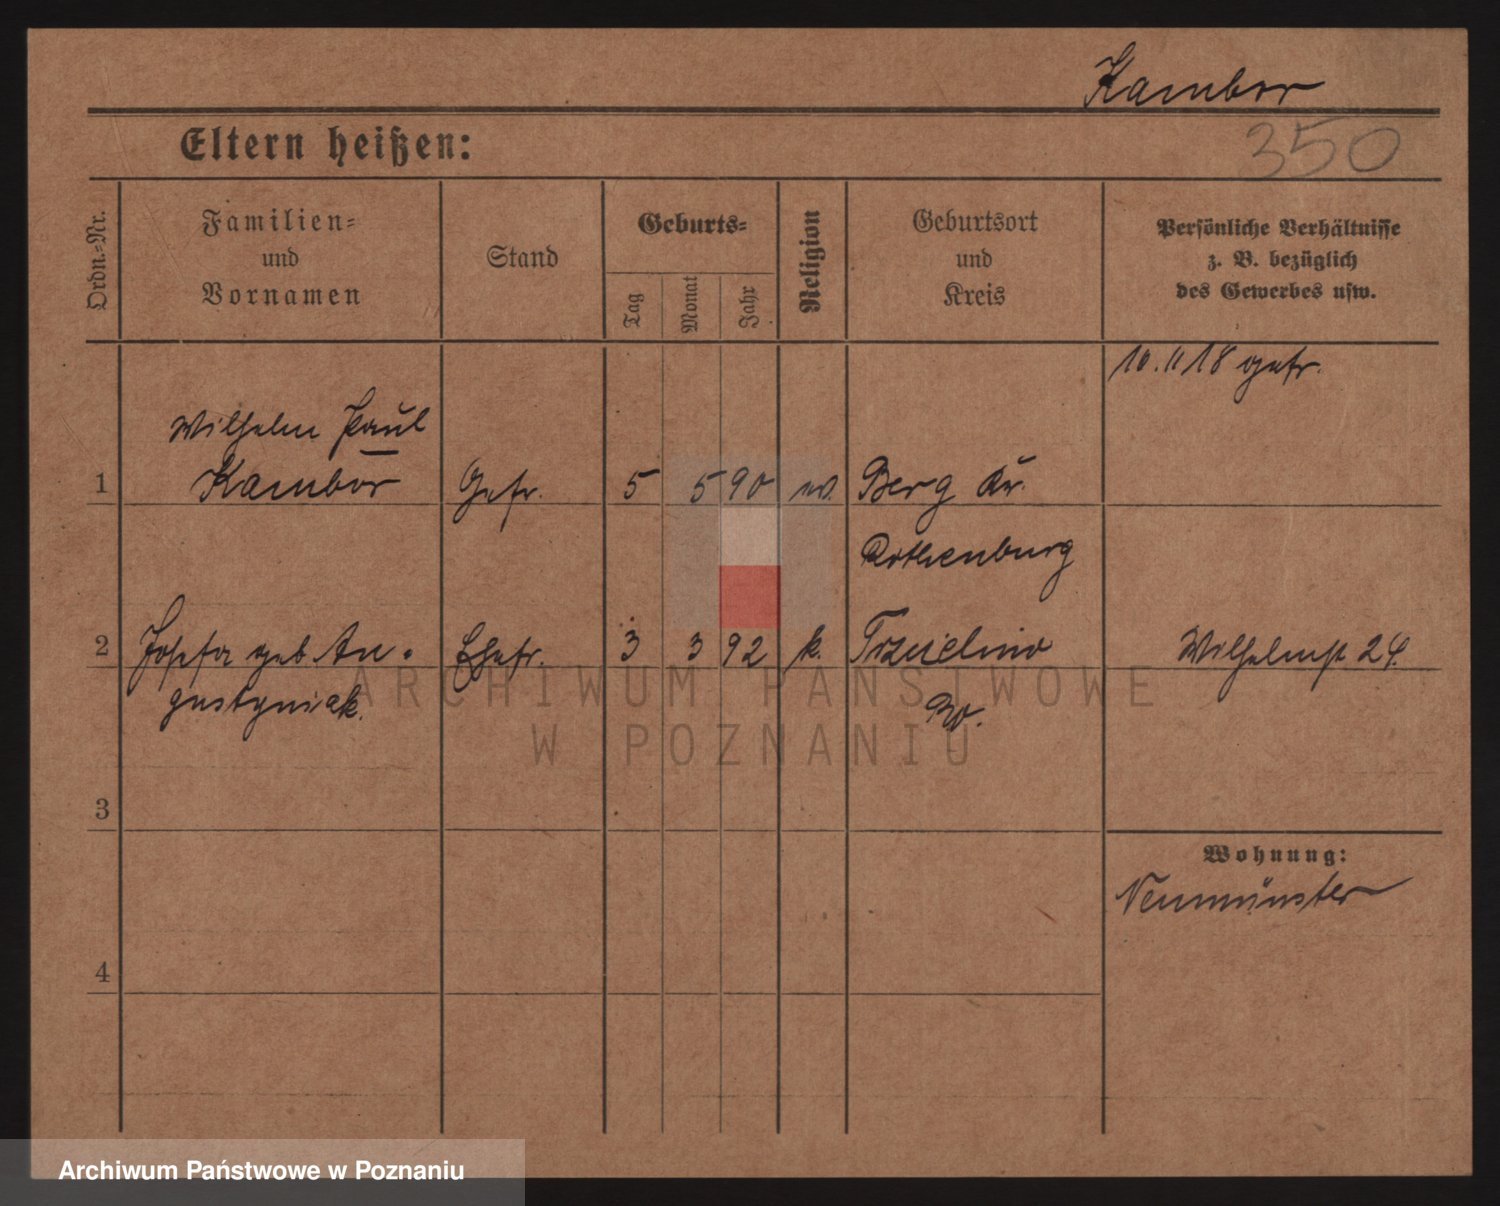 Kambor
350
Eltern heißen:
Ordn.-Nr.
Familien-
und
Vornamen
Stand
Geburts-
Tag
Monat
Jahr
Religion
Geburtsort
und
Kreis
Persönliche Verhältnisse
z. B. bezüglich
des Gewerbes usw.
10. 11 18 getr.
Wilhelm Paul
1 Kambor Gefr. 5 5 90 ev. Berg Kr.
Rothenburg
2 Josefa geb Au- Ehefr. 3 3 92 k. Trzcielino Wilhelmst 24.
gustyniak. Po.
ARCHIWUM PAŃSTWOWE
W POZNANIU
3
Wohnung:
Neumünster
4
Archiwum Państwowe w Poznaniu